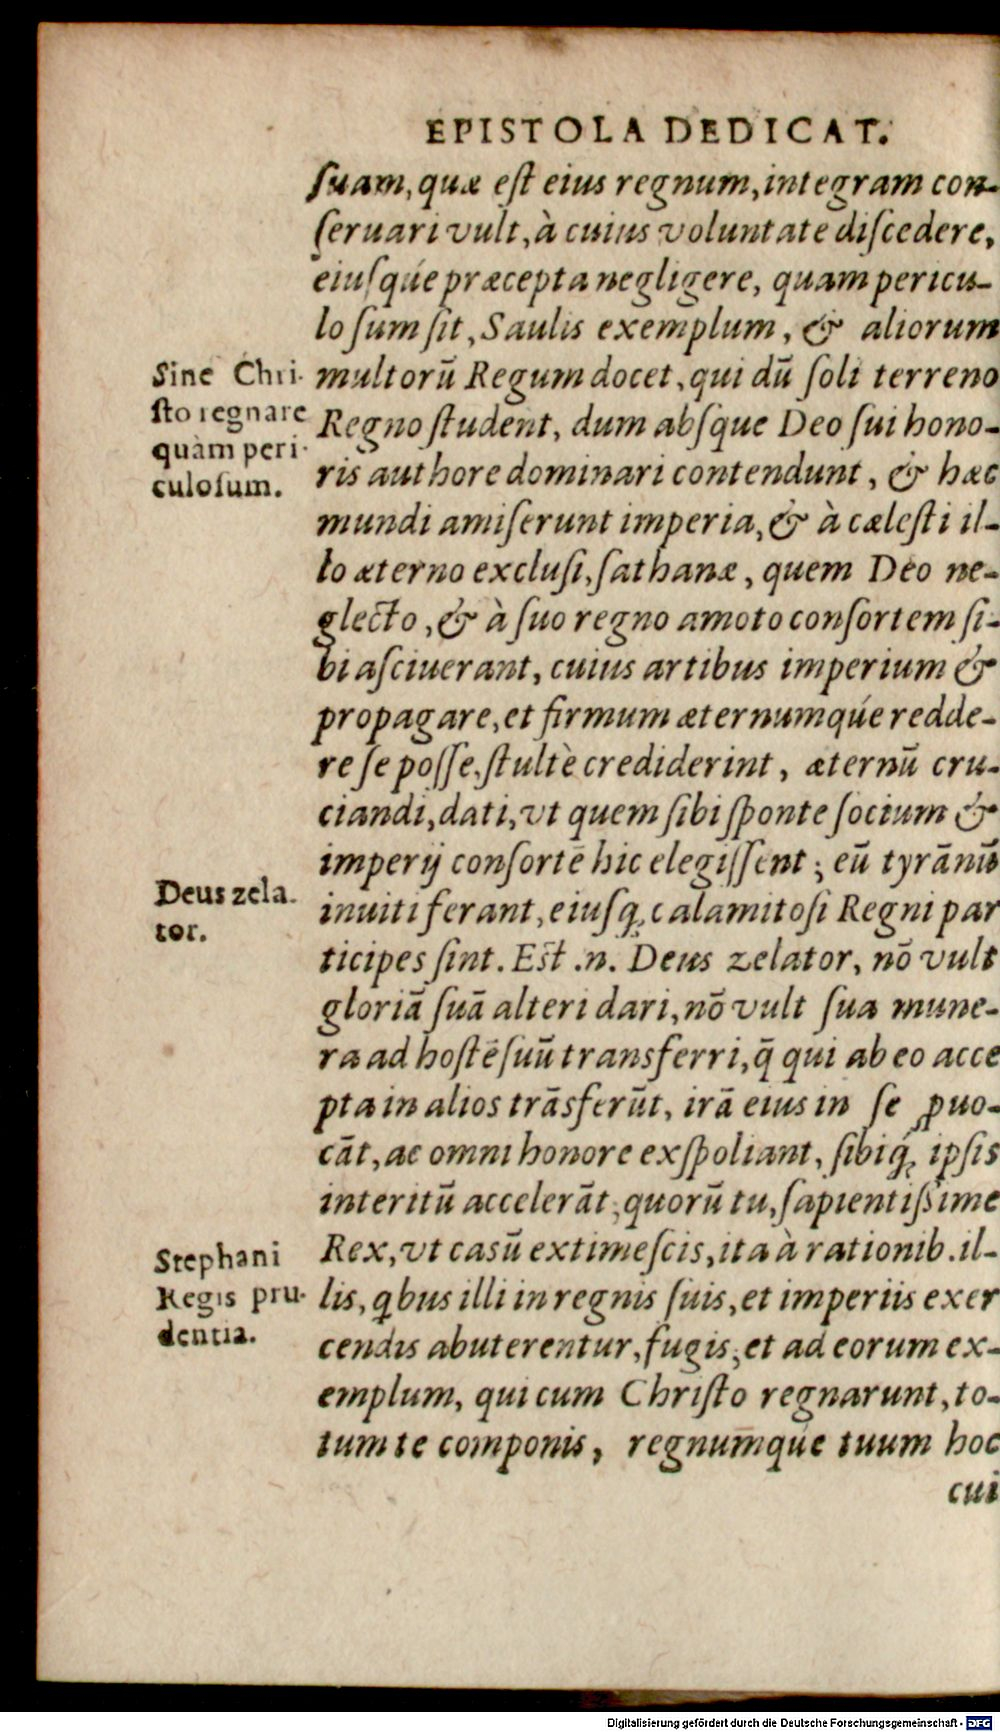 EPISTOLA DEDICAT.
ſuam, quæ eſt eius regnum, integram con-
ſeruari vult, à cuius voluntate diſcedere,
eiuſqúe præcepta negligere, quam pericu-
loſum ſit, Saulis exemplum, & aliorum
Sine Chri-
ſto regnare
quàm peri-
culoſum.
multorū Regum docet, qui dū ſoli terreno
Regno ſtudent, dum abſque Deo ſui hono-
ris authore dominari contendunt, & hæc
mundi amiſerunt imperia, & à cæleſti il-
lo æterno excluſi, ſathanæ, quem Deo ne-
glecto, & à ſuo regno amoto conſortem ſi-
bi aſciuerant, cuius artibus imperium &
propagare, et firmum æternumqúe redde-
re ſe poſſe, ſtultè crediderint, æternū cru-
ciandi, dati, vt quem ſibi ſponte ſocium &
imperij conſortē hic elegiſſent; eū tyrānū
Deus zela-
tor.
inuiti ferant, eiuſq́; calamitoſi Regni par
ticipes ſint. Eſt .n. Deus zelator, nō vult
gloriā ſuā alteri dari, nō vult ſua mune-
ra ad hoſtē ſuū transferri, q̄ qui ab eo acce
pta in alios trāsferūt, irā eius in ſe ꝓuo-
cāt, ac omni honore exſpoliant, ſibiq́; ipſis
interitū accelerāt; quorū tu, ſapientiſsime
Stephani
Regis pru-
dentia.
Rex, vt caſū extimeſcis, ita à rationib. il-
lis, q̇bus illi in regnis ſuis, et imperiis exer
cendis abuterentur, fugis; et ad eorum ex-
emplum, qui cum Chriſto regnarunt, to-
tum te componis, regnumqúe tuum hoc
cui
Digitalisierung gefördert durch die Deutsche Forschungsgemeinschaft - DFG